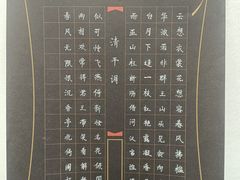 云想衣裳花想容春风拂槛
华浓若非群玉山头见
月下逢一枝红艳露凝香
雨巫山枉断肠借问汉宫
清平调
似可怜飞燕倚新妆名花倾
两相欢常得君王带笑看解
春风无限恨沉香亭北倚阑